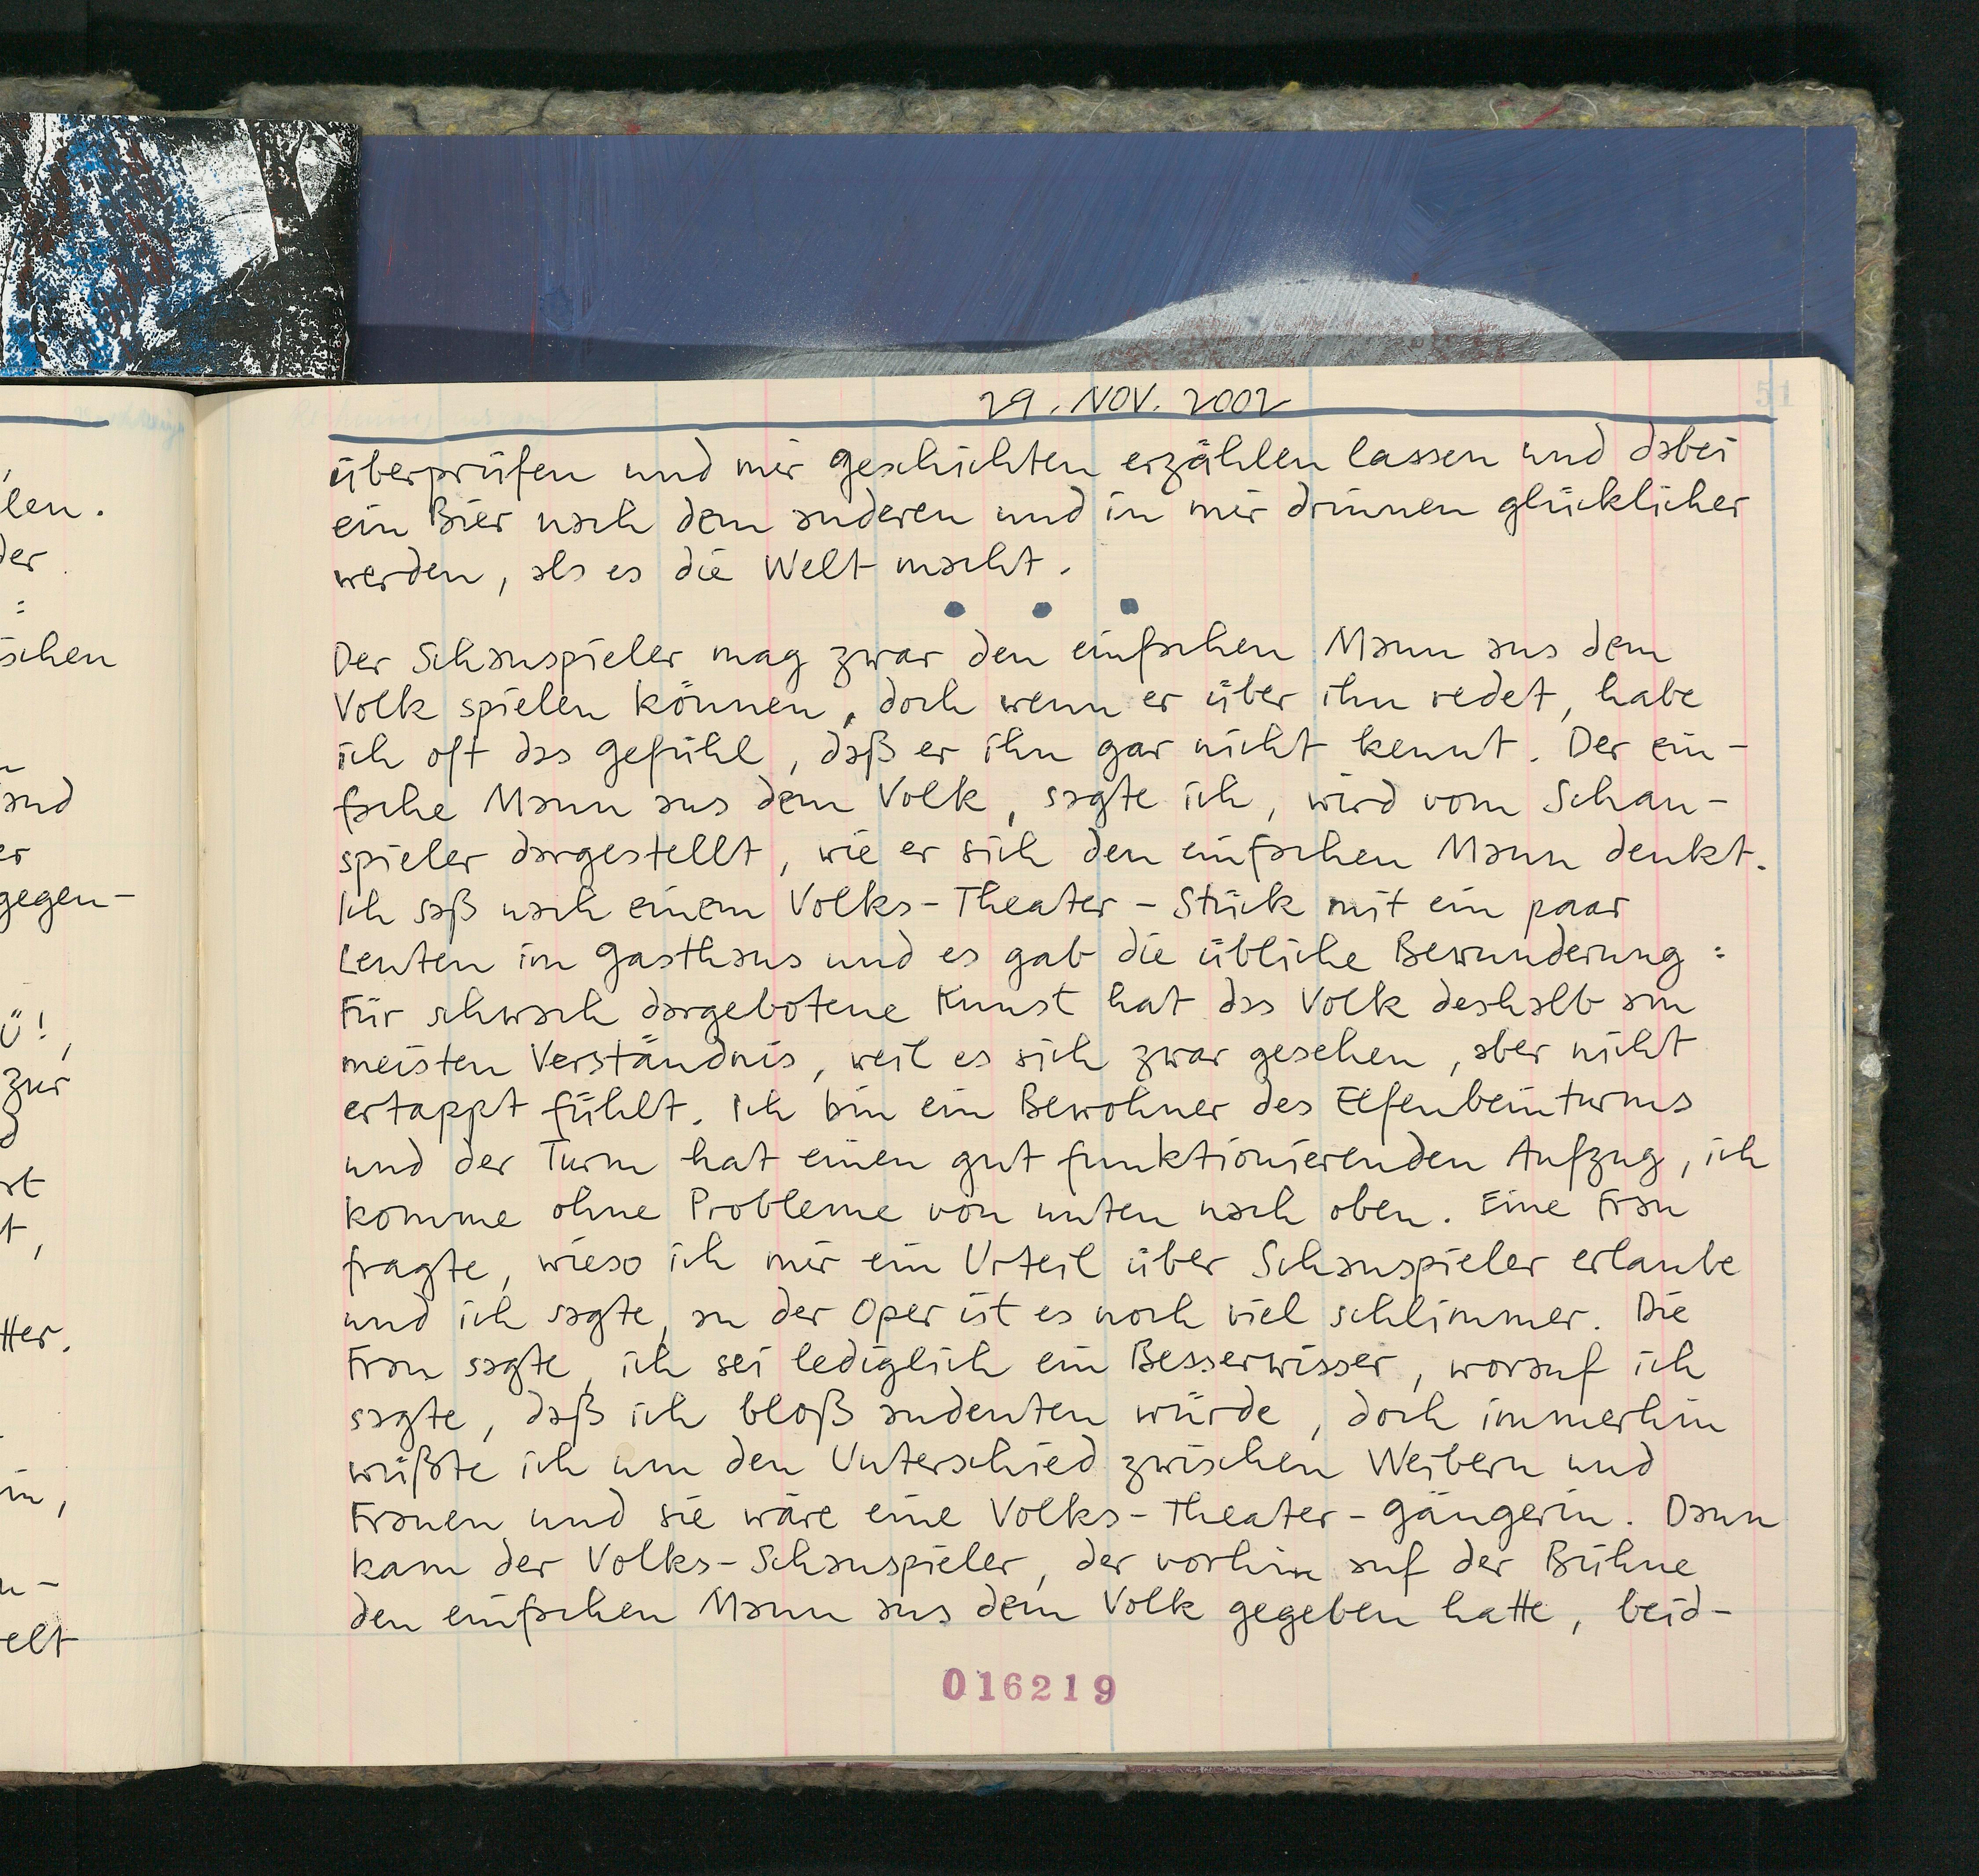 29. NOV. 2002
51
überprüfen und mir Geschichten erzählen lassen und dabei
ein Bier nach dem anderen und in mir drinnen glücklicher
werden, als es die Welt macht.
Der Schauspieler mag zwar den einfachen Mann aus dem
Volk spielen können, doch wenn er über ihn redet, habe
ich oft das Gefühl, daß er ihn gar nicht kennt. Der ein-
fache Mann aus dem Volk, sagte ich, wird vom Schau-
spieler dargestellt, wie er sich den einfachen Mann denkt.
Ich saß nach einem Volks-Theater-Stück mit ein paar
Leuten im Gasthaus und es gab die übliche Bewunderung:
Für schwach dargebotene Kunst hat das Volk deshalb am
meisten Verständnis, weil es sich zwar gesehen, aber nicht
ertappt fühlt. Ich bin ein Bewohner des Elfenbeinturms
und der Turm hat einen gut funktionierenden Aufzug, ich
komme ohne Probleme von unten nach oben. Eine Frau
fragte, wieso ich mir ein Urteil über Schauspieler erlaube
und ich sagte, an der Oper ist es noch viel schlimmer. Die
Frau sagte, ich sei lediglich ein Besserwisser, worauf ich
sagte, daß ich bloß andeuten würde, doch immerhin
wüßte ich um den Unterschied zwischen Weibern und
Frauen und sie wäre eine Volks-Theater-Gängerin. Dann
kam der Volks-Schauspieler, der vorhin auf der Bühne
den einfachen Mann aus dem Volk gegeben hatte, beid-
016219
len.
der
schen
and
er
gegen-
ü!,
zur
rt
t,
tter.
in,
n-
elt